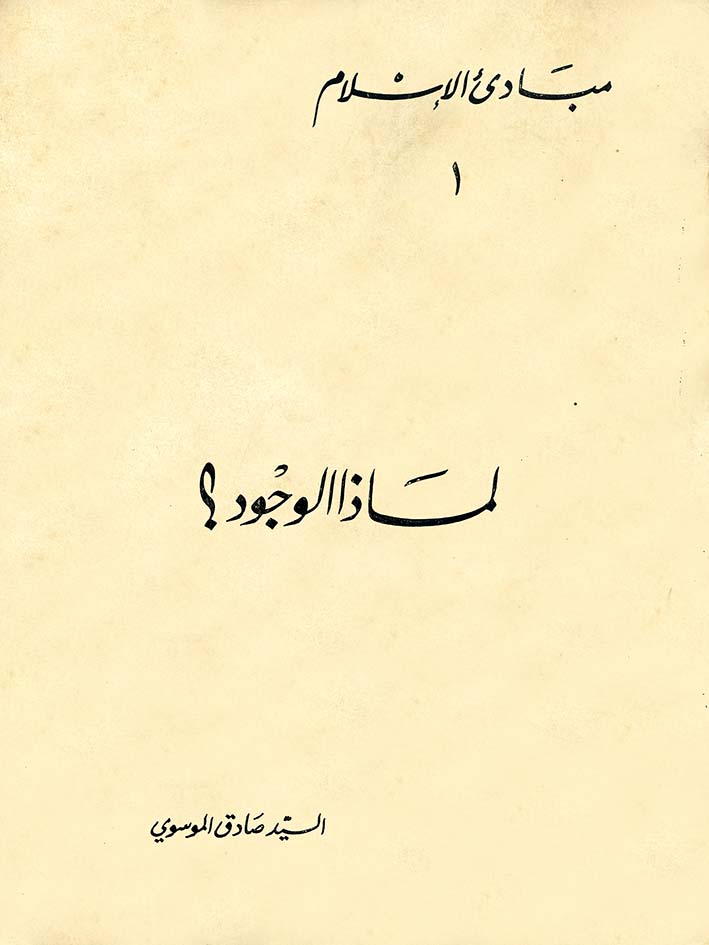 مبَادئ الإسْلام
١
لمَاذا الوجُود ؟
السيّد صَادق الموسوي